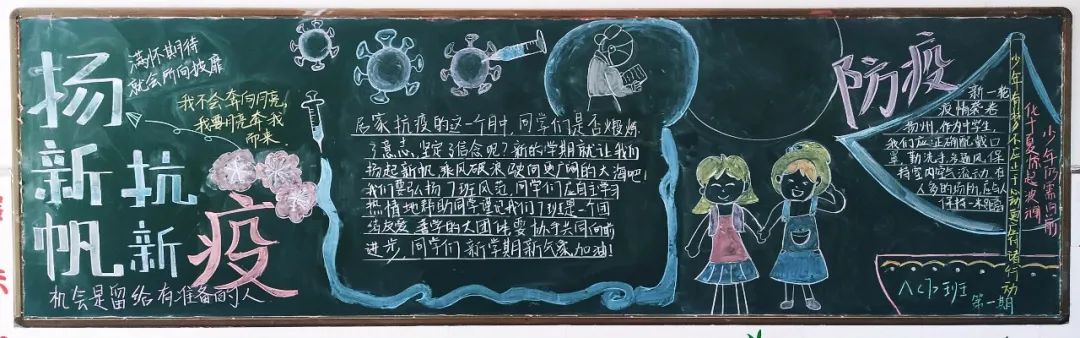 扬新帆
抗新疫
满怀期待
就会所向披靡
我不会奔向月亮,
我要月亮奔我
而来
机会是留给有准备的人
居家抗疫的这一个月中,同学们是否锻炼
了意志,坚定了信念呢?新的学期就让我们
扬起新帆,乘风破浪驶向更广阔的大海吧!
我们要弘扬7班风范,同学们应自主学习
热情地帮助同学谨记我们7班是一个团
结友爱,善学的大团体要协手共同向前
进步,同学们新学期新气象,加油!
防疫
新一轮
疫情袭卷
扬州,作为中学生,
我们应正确配戴口
罩,勤洗手多通风,保
持室内空气流动,在
人多的场所,应与人
保持一米距离
少年有梦不应止于心动更应付诸行动
化作夏你起波澜
少年仍需向前
八(7)班
第一期